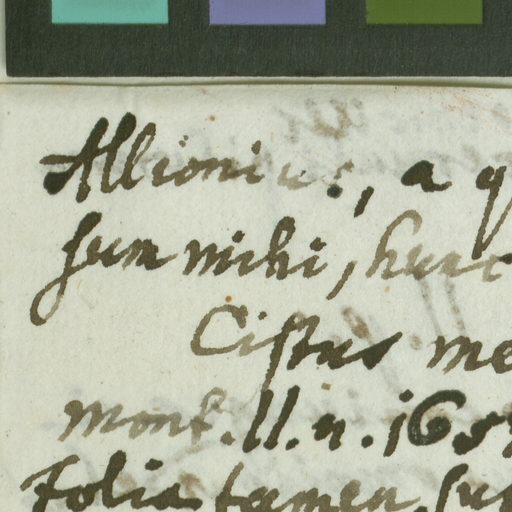 Allionius, a q
sum mihi, hunc
Cistus me
monſ. II. n. 165
Folia tamen